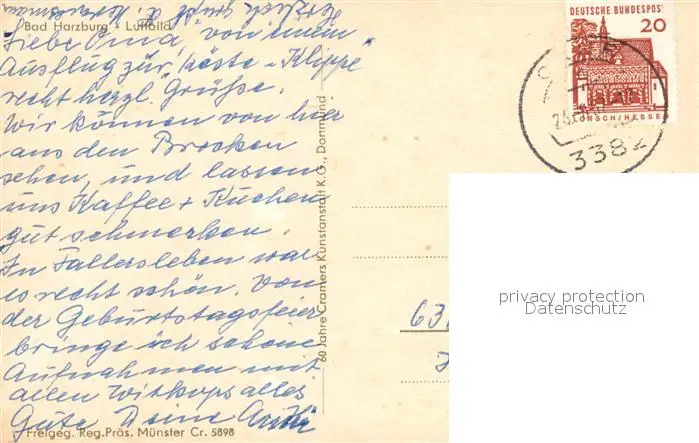 Bad Harzburg - Luftbild
Liebe Oma, von einem
Ausflug zur "Käste-Klippe"
recht herzl. Grüße.
Wir können von hier
aus den Brocken
sehen, und lassen
uns Kaffee + Kuchen
gut schmecken.
In Fallersleben war
es recht schön. Von
der Geburtstagsfeier
bringe ich schöne
Aufnahmen mit
allen Witkops alles
Gute Deine
Freigeg. Reg.Präs. Münster Cr. 5898
60 Jahre Cramers Kunstanstalt K.G., Dortmund
DEUTSCHE BUNDESPOST
20
LORSCH/HESSEN
3382
63
privacy protection
Datenschutz